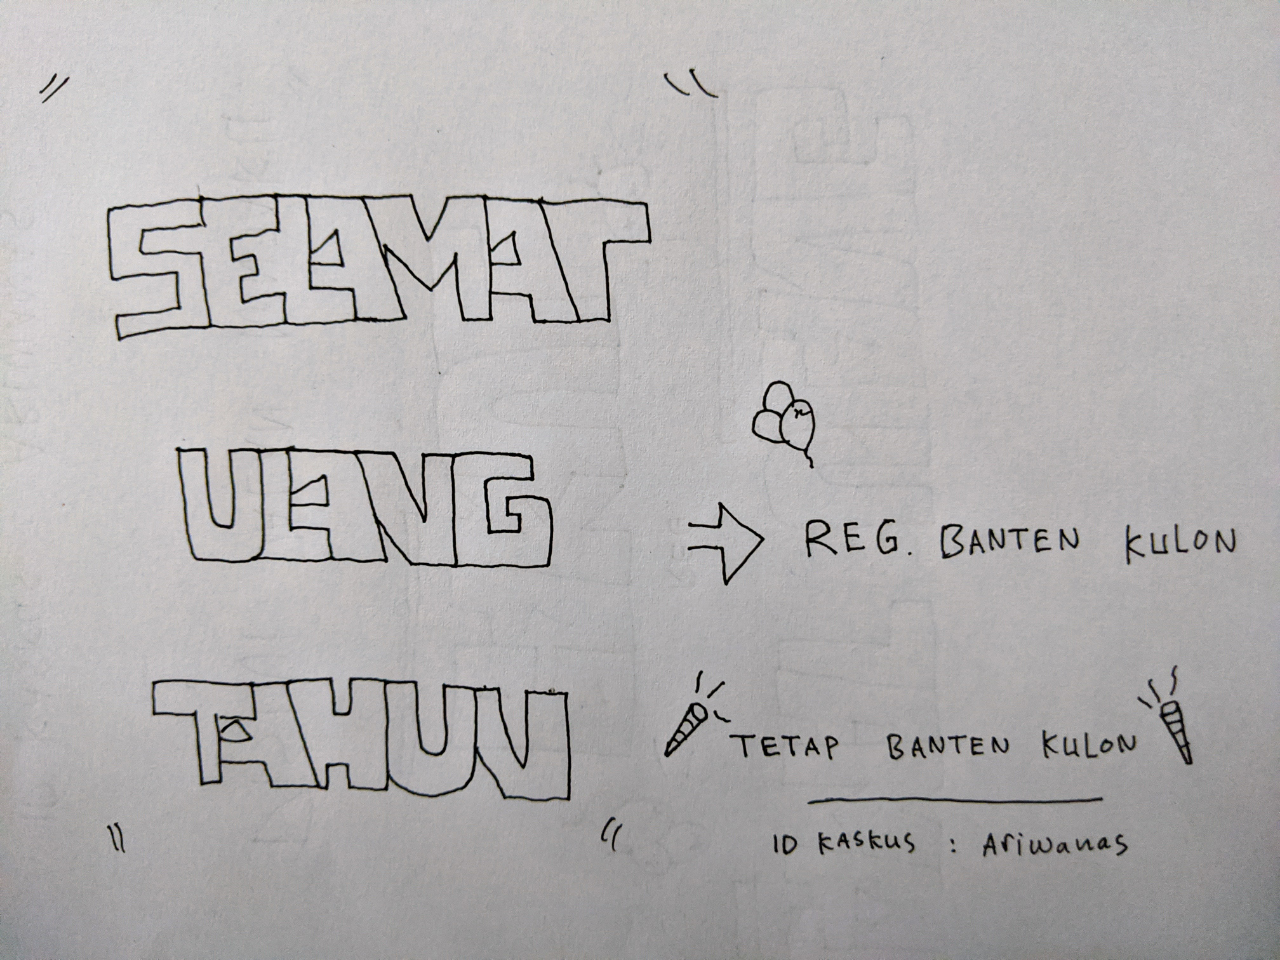 SELAMAT
ULANG
TAHUN
REG. BANTEN KULON
TETAP BANTEN KULON
ID KASKUS : Ariwanas